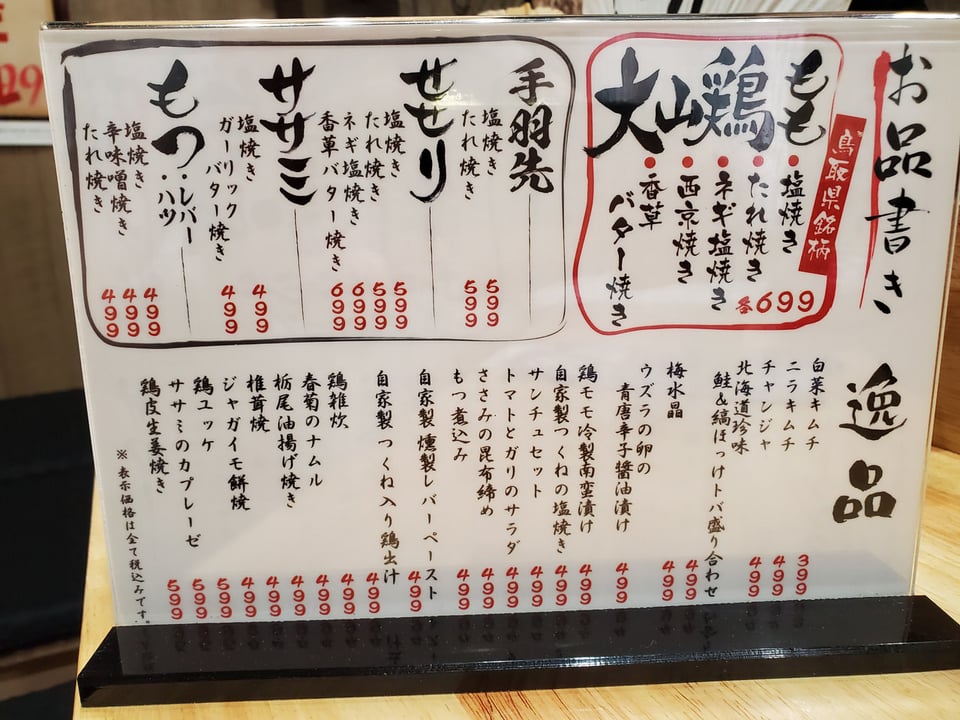 お品書き
鳥取県銘柄
大山鶏もも
・塩焼き
・たれ焼き
・ネギ塩焼き
・西京焼き
・香草バター焼き
各699
手羽先
塩焼き 599
たれ焼き 599
せせり
塩焼き 599
たれ焼き 599
ネギ塩焼き 699
香草バター焼き 699
ササミ
塩焼き 499
ガーリックバター焼き 499
もつ・レバー・ハツ
塩焼き 499
辛味噌焼き 499
たれ焼き 499
逸品
白菜キムチ 399
ニラキムチ 499
チャンジャ 499
北海道珍味
鮭&縞ほっけトバ盛り合わせ 499
梅水晶 499
ウズラの卵の
青唐辛子醤油漬け 499
鶏モモ冷製南蛮漬け 499
自家製つくねの塩焼き 499
サンチュセット 499
トマトとガリのサラダ 499
ささみの昆布締め 499
もつ煮込み 499
自家製燻製レバーペースト 499
自家製つくね入り鶏出汁 499
鶏雑炊 499
春菊のナムル 499
栃尾油揚げ焼き 499
椎茸焼 499
ジャガイモ餅焼 499
鶏ユッケ 599
ササミのカプレーゼ 599
鶏皮生姜焼き 599
※表示価格は全て税込みです。